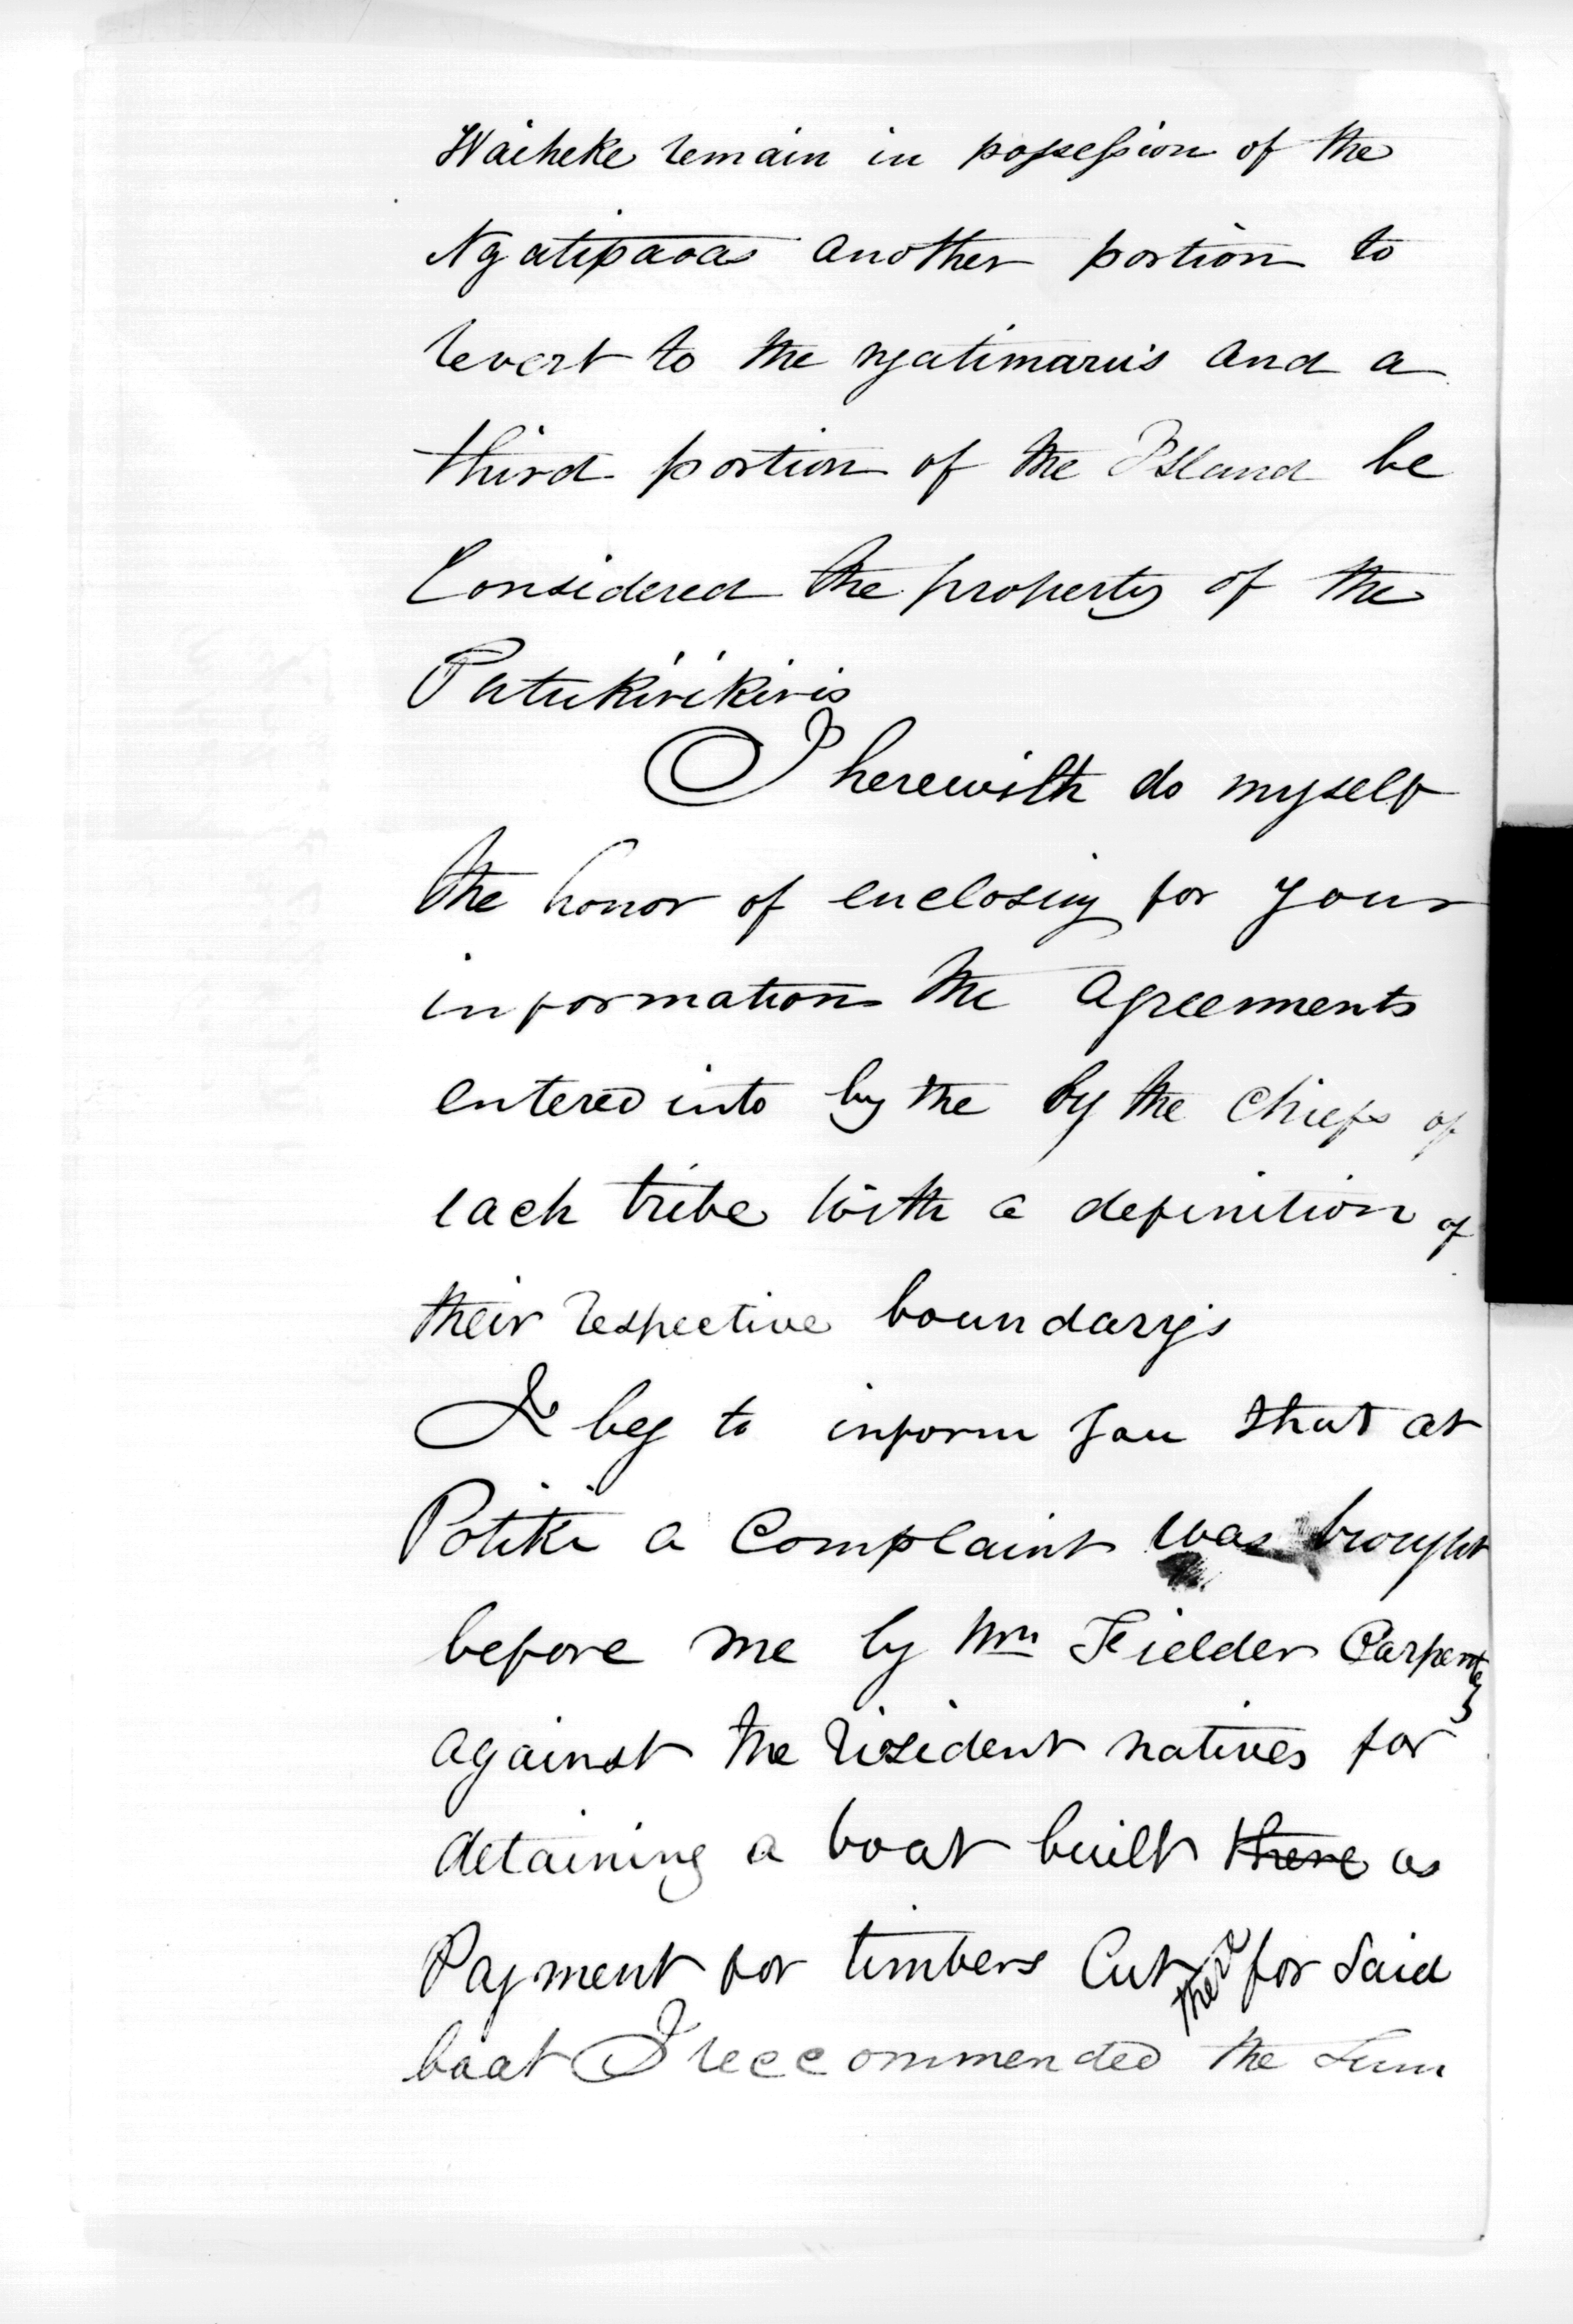 Waiheke remain in possession of the
Ngatipaoas another portion to
revert to the ngatimaru's and a
third portion of the Island be
Considered the property of the
Patukirikiris
I herewith do myself
the honor of enclosing for your
information the agreements
entered into by the by the Chiefs of
each tribe with a definition of
their respective boundary's
I beg to inform you that at
Potiki a Complaint was brought
before me by Wm Fielder Carpenter
against the risident natives for
detaining a boat built there as
Payment for timbers Cut there for Said
boat I reccommended the Sum